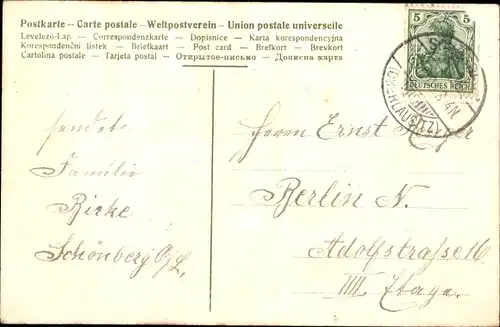 Postkarte -- Carte postale - Weltpostverein - Union postale universelle
Levelező-Lap — Correspondenzkarte — Dopisnice — Karta korespondencyjna
Korespondenční listek — Briefkaart — Post card — Brefkort — Brevkort
Cartolina postale — Tarjeta postal — Открытое-письмо — Дописна карта
5 5
DEUTSCHES REICH
(OBERLAUSITZ)
sendet
Familie
Birke
Schönberg O/L.
Herrn Ernst
Berlin N.
Adolfstrasse 16
IIII Etage.